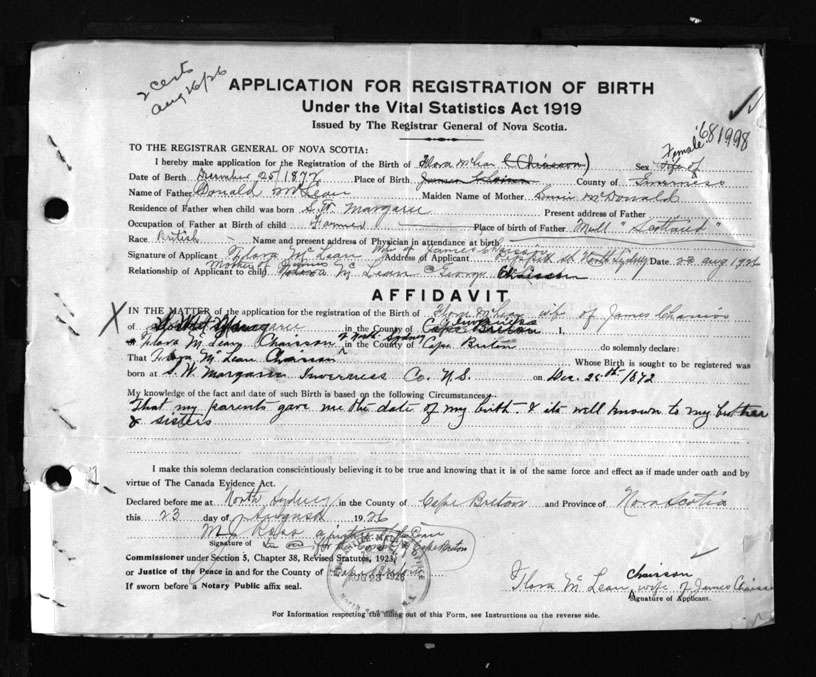 2 certs
Aug 26/26
APPLICATION FOR REGISTRATION OF BIRTH
Under the Vital Statistics Act 1919
Issued by The Registrar General of Nova Scotia.
681998
TO THE REGISTRAR GENERAL OF NOVA SCOTIA:
I hereby make application for the Registration of the Birth of Flora McLean (Chiasson) Sex Female
Date of Birth December 25 1872 Place of Birth County of Inverness
Name of Father Donald McLean Maiden Name of Mother McDonald
Residence of Father when child was born S.W. Margaree Present address of Father
Occupation of Father at Birth of child Farmer Place of birth of Father Mull "Scotland"
Race British Name and present address of Physician in attendance at birth
Signature of Applicant Flora McLean wife of James Chiasson Address of Applicant St North Sydney Date 23 Aug 1926
Relationship of Applicant to child
AFFIDAVIT
IN THE MATTER of the application for the registration of Birth of Flora McLean wife of James
of in the County of I,
Flora McLean Chiasson of North Sydney in the County of Cape Breton do solemnly declare:
That Flora McLean Chiasson Whose Birth is sought to be registered was
born at S.W. Margaree Inverness Co. N.S. on Dec. 25th 1872
My knowledge of the fact and date of such Birth is based on the following Circumstances
That my parents gave me the date of my birth & its well known to my brother
& sisters
I make this solemn declaration conscientiously believing it to be true and knowing that it is of the same force and effect as if made under oath and by
virtue of The Canada Eyidence Act.
Declared before me at North Sydney in the County of Cape Breton and Province of Nova Scotia
this 23 day of August 1926
M J Ross a justice of the Peace
Signature of for the County of Cape Breton
Commissioner under Section 5, Chapter 38, Revised Statutes, 1923,
or Justice of the Peace in and for the County of Cape Breton
If sworn before a Notary Public affix seal.
AUG 23 1926
Flora McLean Chaisson wife of James
Signature of Applicant.
For Information respecting the filling out of this Form, see Instructions on the reverse side.